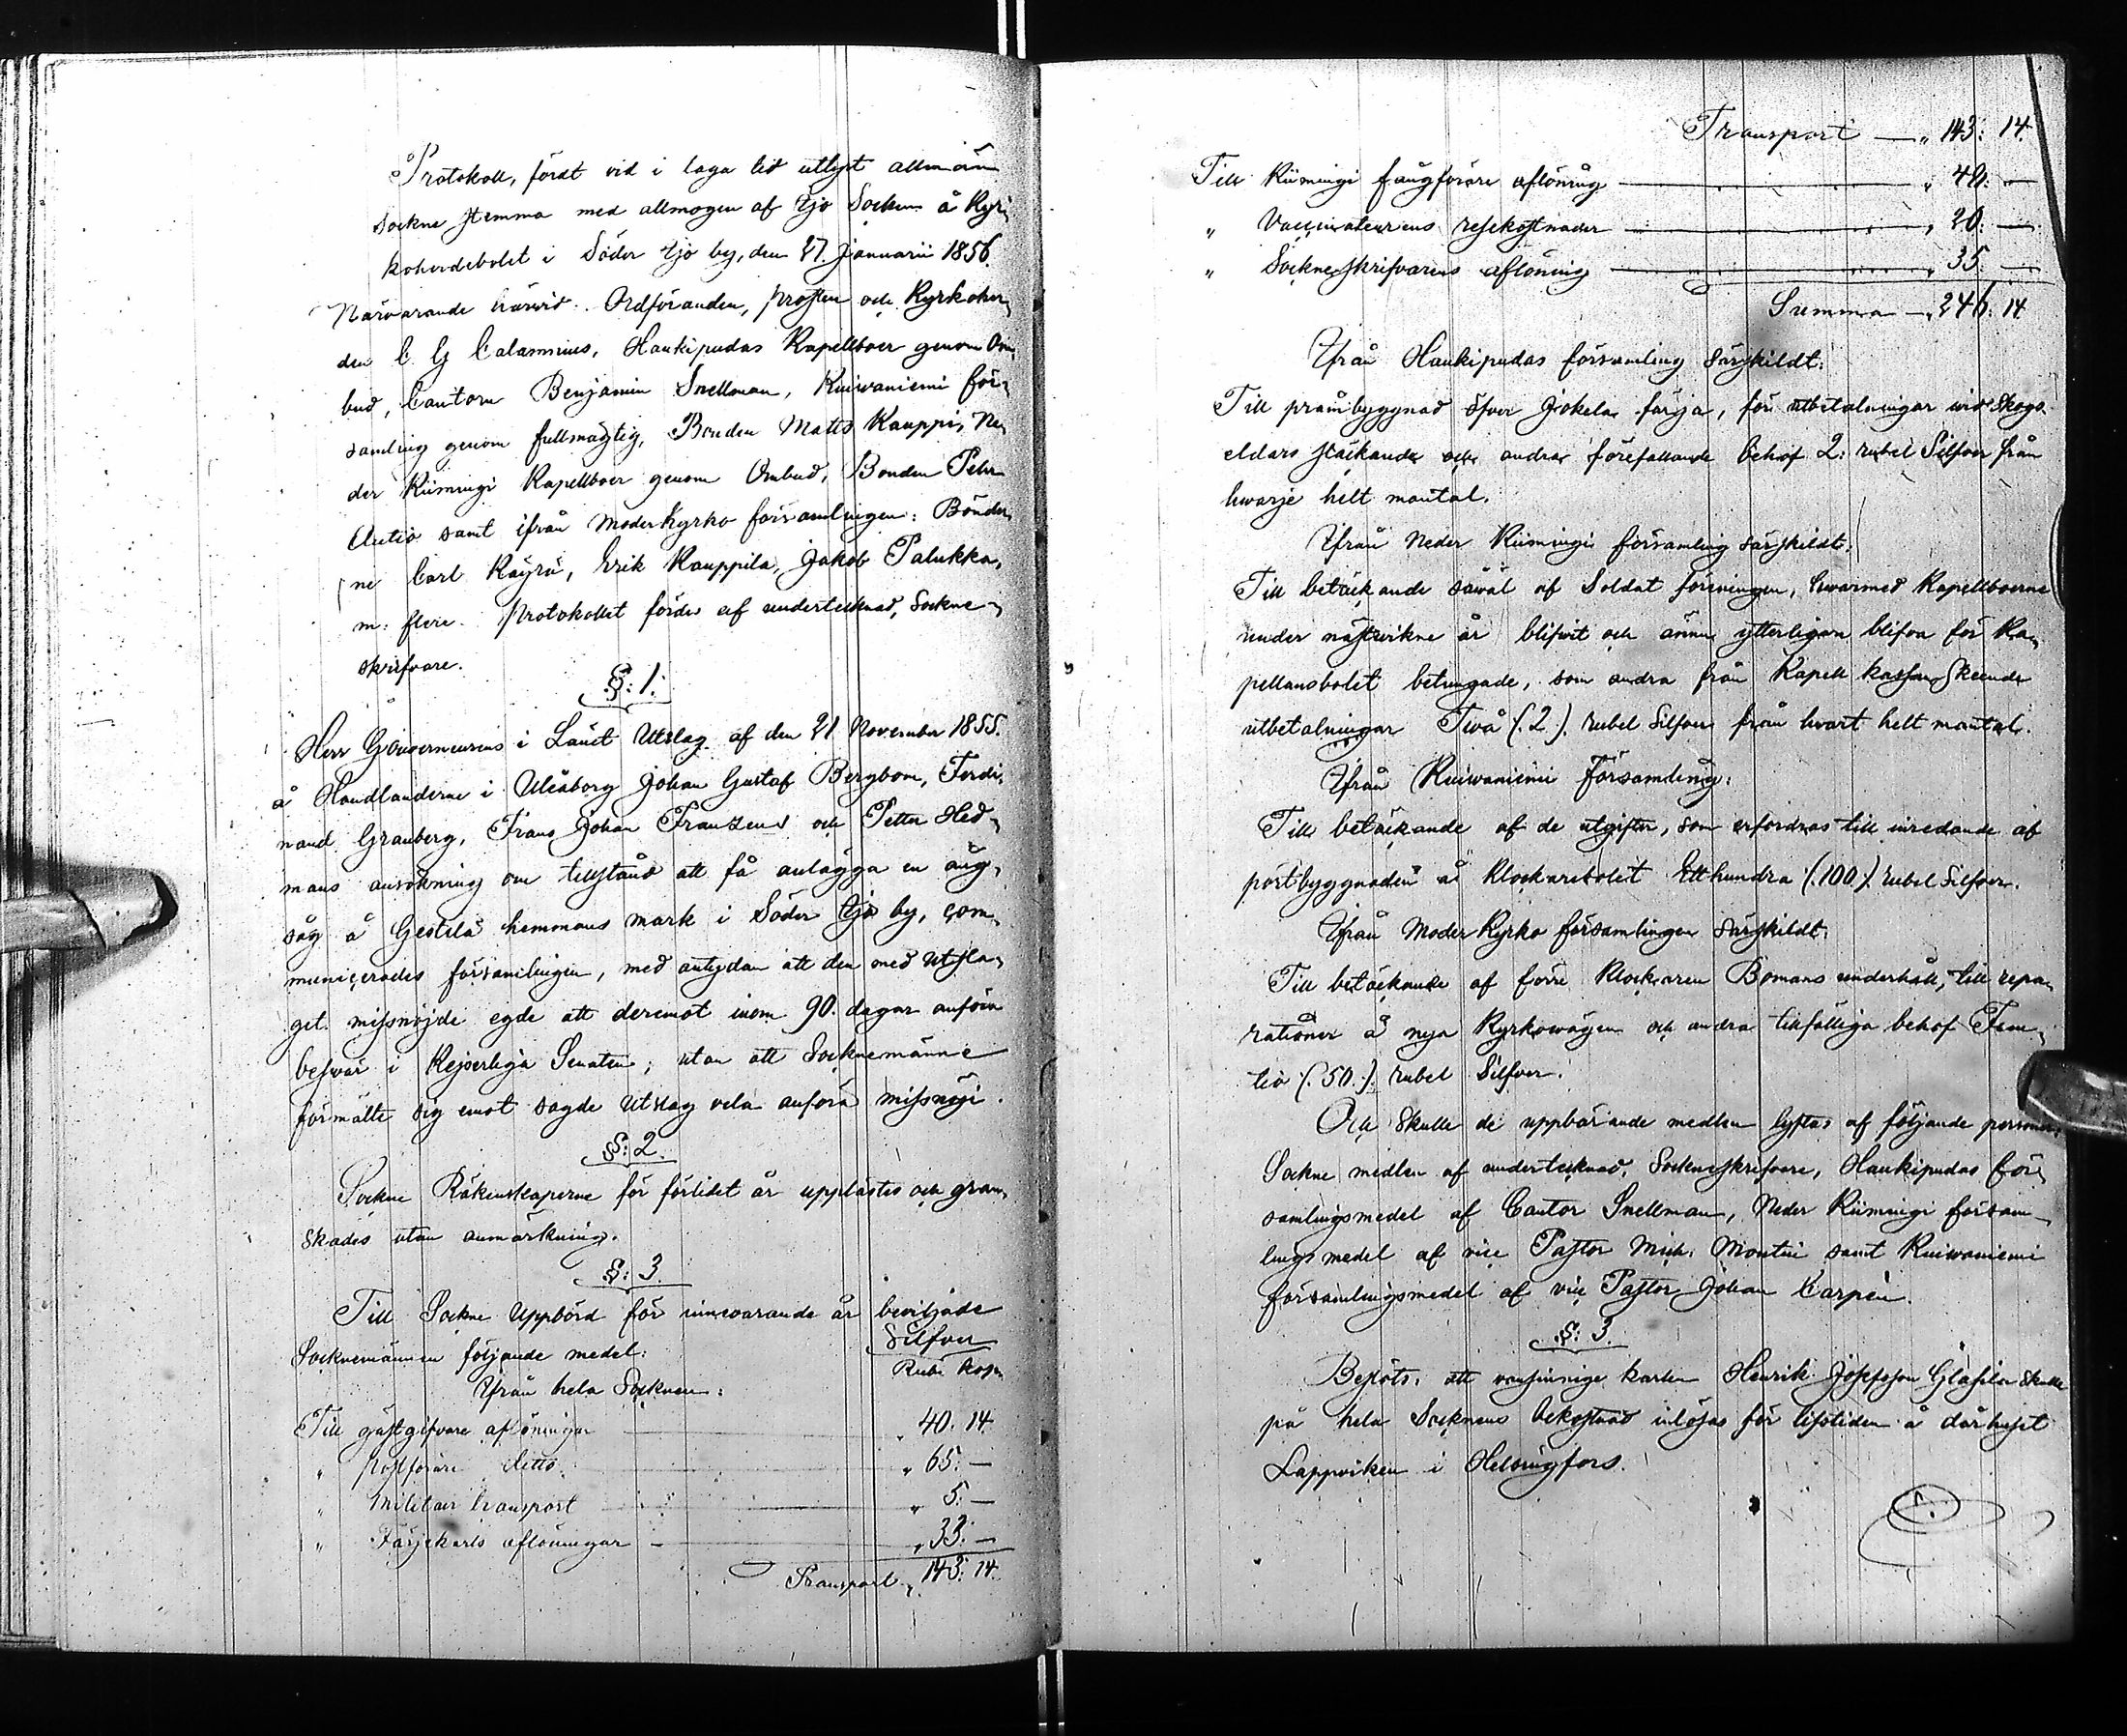 Protokoll, fördt vid i laga tid utlyst allmän
sockne stemma med allmogen af Ijo Socken å Kyr¬
koherdebolet i Söder Ijo by, den 27. Januarii 1856.
Närvarande härvid. Ordföranden, prosten och Kyrkoher¬
den C G Calamnius, Haukipudas Kapellboer genom Om¬
bud, Cantorn Benjamin Snellman, Kuivaniemi för¬
samling genom fullmägtig, Bonden Matts Kauppi, Ne¬
der Kiimingi Kapellboer genom Ombud, Bonden Pehr
Autio samt ifrån Moderkyrko församlingen: Bönder¬
ne Carl Räyrä, Erik Kauppila, Jakob Palukka,
m: flere. Protokollet fördes af undertecknad, Sockne¬
skrifvare.
§: 1.
Herr Gouverneurens i Länet Utslag af den 21 November 1855.
å Handlanderne i Uleåborg Johan Gustaf Bergbom, Ferdi¬
nand Granberg, Frans Johan Franzens och Petter Hed¬
mans ansökning om tillstånd att få anlägga en ång¬
såg å Gestilä hemmans mark i Söder Ijo by, com¬
municerades församlingen, med antydan att den med utsla¬
get missnöjde egde att deremot inom 90. dagar anföra
besvär i Kejserliga Senaten; utan att Socknemänne
förmälte sig emot sagde Utslag vela anföra missnöje.
§: 2.
Sockne Räkenskaperne för förlidet år upplästes och gran¬
skades utan anmärkning.
§: 3.
Till Sockne Uppbörd för innevarande år beviljade
Socknemännen följande medel: Silfver
Ifrån hela Socknen: Rub. Kop.
Till gästgifvare aflöningar " 40. 14.
" postförare ditto " 65: —
" Militair transport " 5: —
" Färjekarls aflöningar " 33: —
Transport " 143: 14.
Transport — " 143: 14.
Till Kiimingi fångförare aflöning " 48: —
" Vaccinateurens resekostnader " 20: —
" Sockneskrifvarens aflöning " 35: —
Summa — " 246: 14
Ifrån Haukipudas församling särskildt:
Till pråmbyggnad öfver Jokela färja, för utbetalningar vid skogs
eldars släckande och andra förefallande behof 2: rubel Silfver från
hvarje helt mantal.
Ifrån Neder Kiimingi församling särskildt:
Till betäckande såväl af Soldat föreningen, hvarmed Kapellboerne
under nästvikne år blifvit och ännu ytterligare blifva för Ka¬
pellansbolet betungade, som andra från Kapell kassan skeende
utbetalningar Två (.2.) rubel Silfver från hvart helt mantal.
Ifrån Kuivaniemi Församling:
Till betäckande af de utgifter, som erfordras till inredande af
pörtbyggnaden å Klockarebolet Etthundra (.100.) rubel Silfver.
Ifrån Moder Kyrko församlingen särskildt:
Till betäckande af förre Klockaren Bomans underhåll, till repa¬
rationer å nya Kyrkovägen och andra tillfälliga behof Fem¬
tio (.50.). rubel Silfver.
Och skulle de uppbärande medlen lyftas af följande personer:
Sockne medlen af undertecknad, Sockneskrifvare, Haukipudas för¬
samlingsmedel af Cantor Snellman, Neder Kiimingi försam¬
lings medel af vice Pastor Mich: Montin samt Kuivaniemi
församlingsmedel af vice Pastor Johan Carpén.
§: 3.
Beslöts, att vansinnige karlen Henrik Josefsson Glasila skulle
på hela Socknens bekostnad inlösas för lifstiden å dårhuset
Lappviken i Helsingfors.